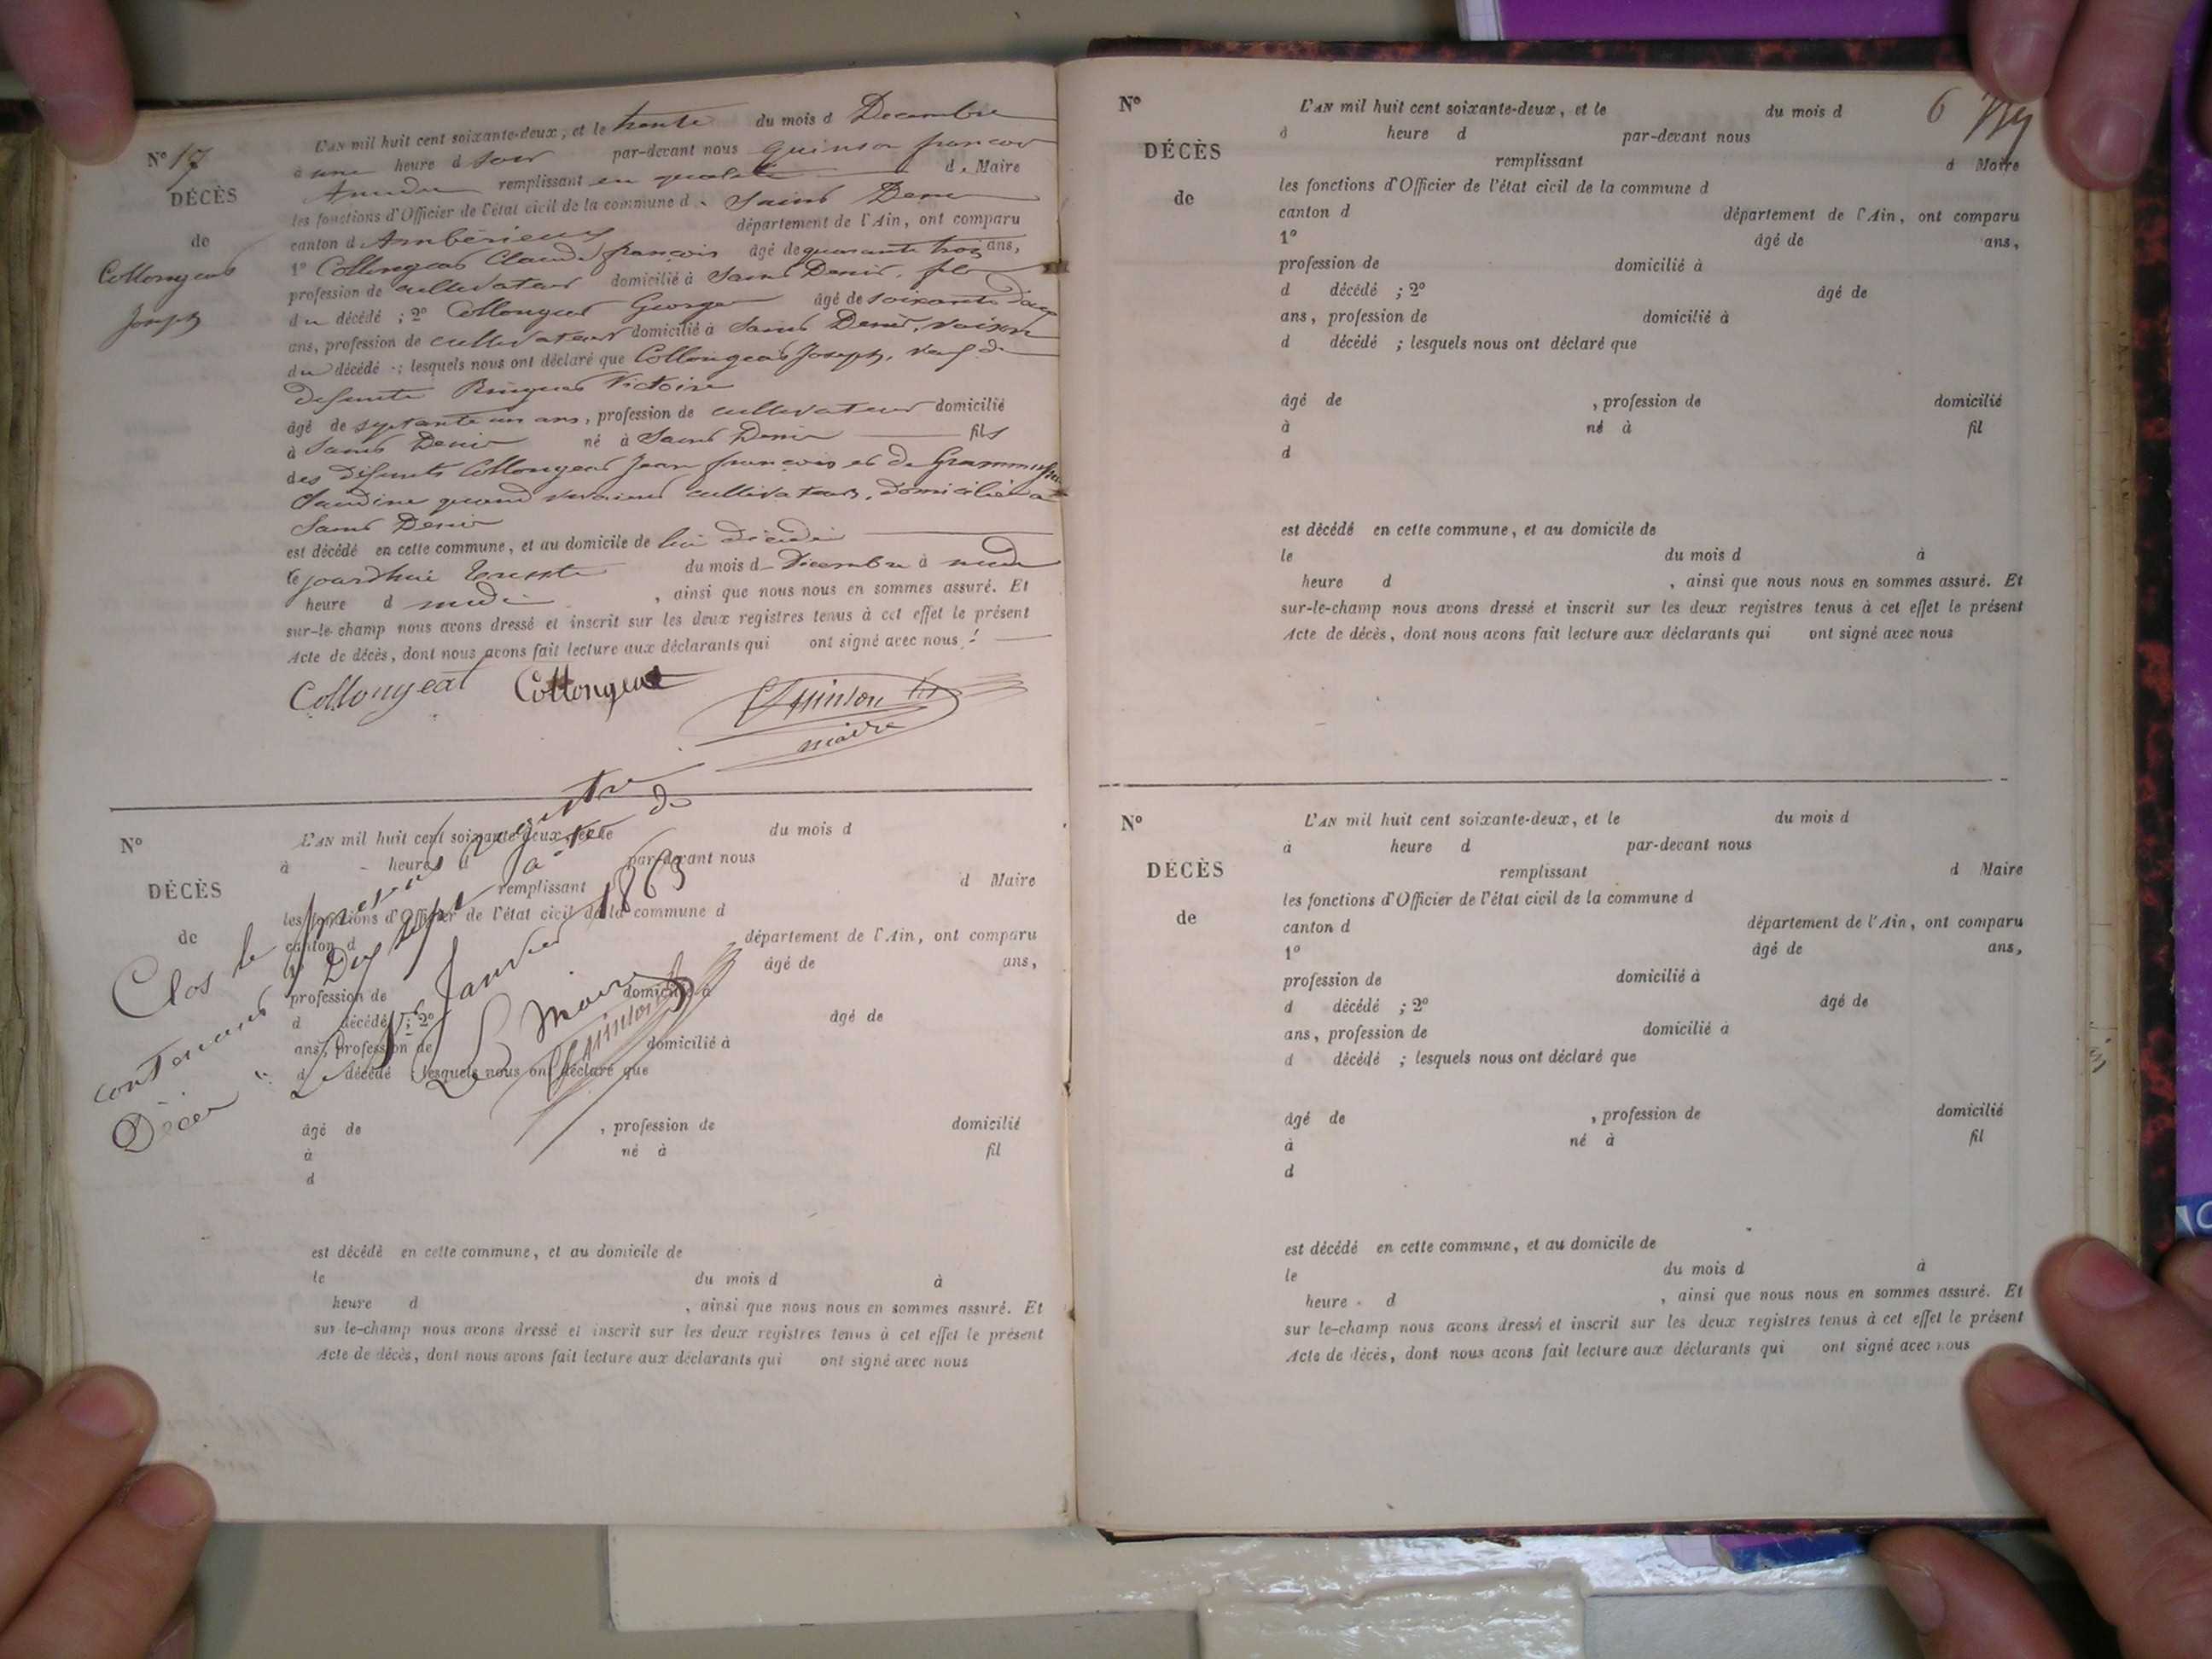 N° 17
DÉCÈS
de
Collongeat
Joseph
L'AN mil huit cent soixante-deux, et le trente du mois d Decembre
à une heure d soir par-devant nous quinson francois
remplissant en qualité d. Maire
les fonctions d'Officier de l'état civil de la commune d. Saint Denis
canton d Ambérieux département de l'Ain, ont comparu
1° Collongeat Claude françois âgé de quarante trois ans,
profession de cultivateur domicilié à Saint Denis, fils
du décédé ; 2° Collongeat George âgé de soixante
ans, profession de cultivateur domicilié à Saint Denis, voisin
du décédé ; lesquels nous ont déclaré que Collongeat Joseph, veuf de
defunte Victoire
âgé de septante un ans, profession de cultivateur domicilié
à Saint Denis né à Saint Denis fils
des défunts Collongeat Jean francois et de
Claudine quand vivaient cultivateurs, domiciliés à
Saint Denis
est décédé en cette commune, et au domicile de lui décédé
le jourdhui trente du mois d Décembre à
heure d midi , ainsi que nous nous en sommes assuré. Et
sur-le-champ nous avons dressé et inscrit sur les deux registres tenus à cet effet le présent
Acte de décès, dont nous avons fait lecture aux déclarants qui ont signé avec nous.
Collongeat Collongeat Quinson
maire
N°
DÉCÈS
de
L'AN mil huit cent soixante-deux, et le du mois d
à heure d par-devant nous
remplissant d Maire
les fonctions d'Officier de l'état civil de la commune d
canton d département de l'Ain, ont comparu
1° âgé de ans,
profession de domicilié à
d décédé ; 2° âgé de
ans, profession de domicilié à
d décédé ; lesquels nous ont déclaré que
âgé de , profession de domicilié
à né à fil
d
est décédé en cette commune, et au domicile de
le du mois d à
heure d , ainsi que nous nous en sommes assuré. Et
sur-le-champ nous avons dressé et inscrit sur les deux registres tenus à cet effet le présent
Acte de décès, dont nous avons fait lecture aux déclarants qui ont signé avec nous
Clos le présent registre
contenant Dix sept actes de
Décès
Le Janvier 1863
Le Maire
Quinson
6
N°
DÉCÈS
de
L'AN mil huit cent soixante-deux, et le du mois d
à heure d par-devant nous
remplissant d Maire
les fonctions d'Officier de l'état civil de la commune d
canton d département de l'Ain, ont comparu
1° âgé de ans,
profession de domicilié à
d décédé ; 2° âgé de
ans, profession de domicilié à
d décédé ; lesquels nous ont déclaré que
âgé de , profession de domicilié
à né à fil
d
est décédé en cette commune, et au domicile de
le du mois d à
heure d , ainsi que nous nous en sommes assuré. Et
sur-le-champ nous avons dressé et inscrit sur les deux registres tenus à cet effet le présent
Acte de décès, dont nous avons fait lecture aux déclarants qui ont signé avec nous
N°
DÉCÈS
de
L'AN mil huit cent soixante-deux, et le du mois d
à heure d par-devant nous
remplissant d Maire
les fonctions d'Officier de l'état civil de la commune d
canton d département de l'Ain, ont comparu
1° âgé de ans,
profession de domicilié à
d décédé ; 2° âgé de
ans, profession de domicilié à
d décédé ; lesquels nous ont déclaré que
âgé de , profession de domicilié
à né à fil
d
est décédé en cette commune, et au domicile de
le du mois d à
heure d , ainsi que nous nous en sommes assuré. Et
sur le-champ nous avons dressé et inscrit sur les deux registres tenus à cet effet le présent
Acte de décès, dont nous avons fait lecture aux déclarants qui ont signé avec nous